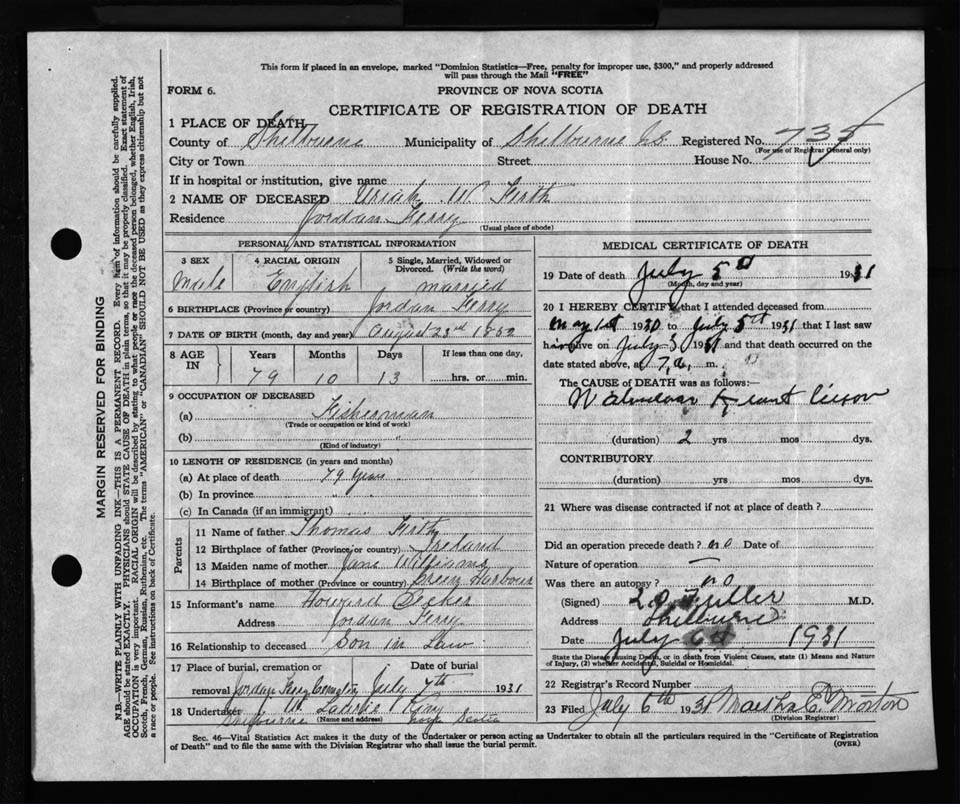 This form if placed in an envelope, marked "Dominion Statistics—Free, penalty for improper use, $300," and properly addressed
will pass through the Mail "FREE"
FORM 6. PROVINCE OF NOVA SCOTIA
CERTIFICATE OF REGISTRATION OF DEATH
1 PLACE OF DEATH
County of Shelburne Municipality of Shelburne N.S. Registered No. 735
(For use of Registrar General only)
City or Town Street House No.
If in hospital or institution, give name
2 NAME OF DECEASED Uriah W. Firth
Residence Jordan Ferry
(Usual place of abode)
PERSONAL AND STATISTICAL INFORMATION
3 SEX 4 RACIAL ORIGIN 5 Single, Married, Widowed or
Divorced. (Write the word)
Male English married
6 BIRTHPLACE (Province or country) Jordan Ferry
7 DATE OF BIRTH (month, day and year) August 23rd
8 AGE IN Years Months Days If less than one day,
79 10 13 hrs. or min.
9 OCCUPATION OF DECEASED
(a) Fisherman
(Trade or occupation or kind of work)
(b) "
(Kind of industry)
10 LENGTH OF RESIDENCE (in years and months)
(a) At place of death 79 Years
(b) In province " "
(c) In Canada (if an immigrant) " "
Parents
11 Name of father Thomas Firth
12 Birthplace of father (Province or country) Ireland
13 Maiden name of mother Jane Williams
14 Birthplace of mother (Province or country) Green Harbour
15 Informant's name Howard
Address Jordan Ferry
16 Relationship to deceased Son in Law
17 Place of burial, cremation or Date of burial
removal Jordan Ferry Cemetery July 7th 1931
18 Undertaker King
Shelburne (Name and address) Nova Scotia
MEDICAL CERTIFICATE OF DEATH
19 Date of death July 5th 1931
(Month, day and year)
20 I HEREBY CERTIFY that I attended deceased from
May 1st 1930 to July 5th 1931 that I last saw
him alive on July 3 1931 and that death occurred on the
date stated above, at 7 a. m.
The CAUSE of DEATH was as follows:
Valvular Heart Lesion
(duration) 2 yrs mos dys.
CONTRIBUTORY
(duration) yrs. mos. dys.
21 Where was disease contracted if not at place of death?
Did an operation precede death? no Date of
Nature of operation —
Was there an autopsy? no
(Signed) Fuller M.D.
Address Shelburne
Date July 6th 1931
State the Disease causing Death, or in death from Violent Causes, state (1) Means and Nature
of Injury, (2) whether Accidental, Suicidal or Homicidal.
22 Registrar's Record Number
23 Filed July 6th 1931 Martha E. Morton
(Division Registrar)
Sec. 46—Vital Statistics Act makes it the duty of the Undertaker or person acting as Undertaker to obtain all the particulars required in the "Certificate of Registration
of Death" and to file the same with the Division Registrar who shall issue the burial permit. (OVER)
MARGIN RESERVED FOR BINDING
N.B.—WRITE PLAINLY WITH UNFADING INK—THIS IS A PERMANENT RECORD. Every item of information should be carefully supplied.
AGE should be stated EXACTLY. PHYSICIANS should STATE CAUSE OF DEATH in plain terms, so that it may be properly classified. Exact statement of
OCCUPATION is very important. RACIAL ORIGIN will be described by stating to what people or race the deceased person belonged, whether English, Irish,
Scotch, French, German, Russian, Ruthenian, etc. The terms "AMERICAN" or "CANADIAN" SHOULD NOT BE USED as they express citizenship but not
a race or people. See instructions on back of Certificate.